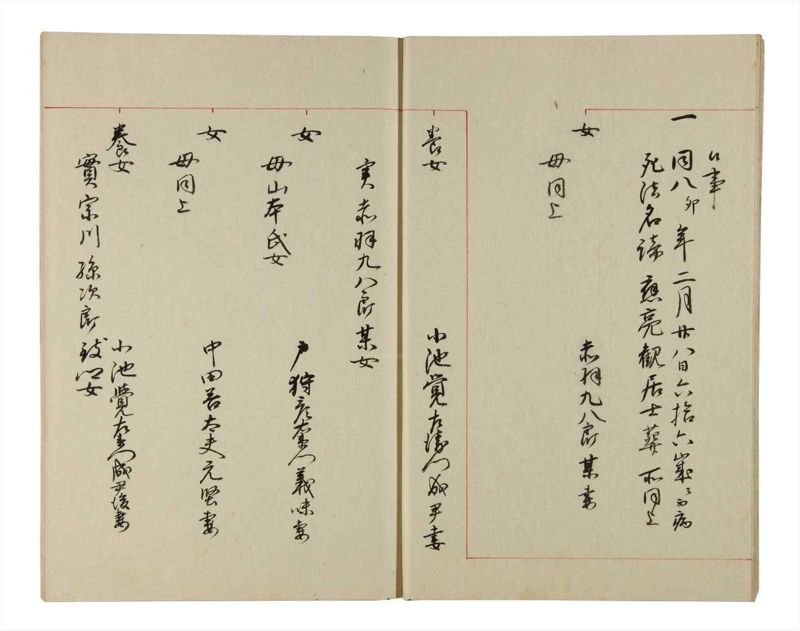 公事
一 同八卯年二月廿八日六拾六歳ニ而病
死法名諦應亮観居士葬所同上
女 赤羽九八郎某妻
母同上
養女 小池覚左衛門成尹妻
実赤羽九八郎某女
女 戸狩彦左衛門義味妻
母山本氏女
女 中田善太夫元堅妻
母同上
養女 小池覚左衛門成尹後妻
實宗川孫次郎女